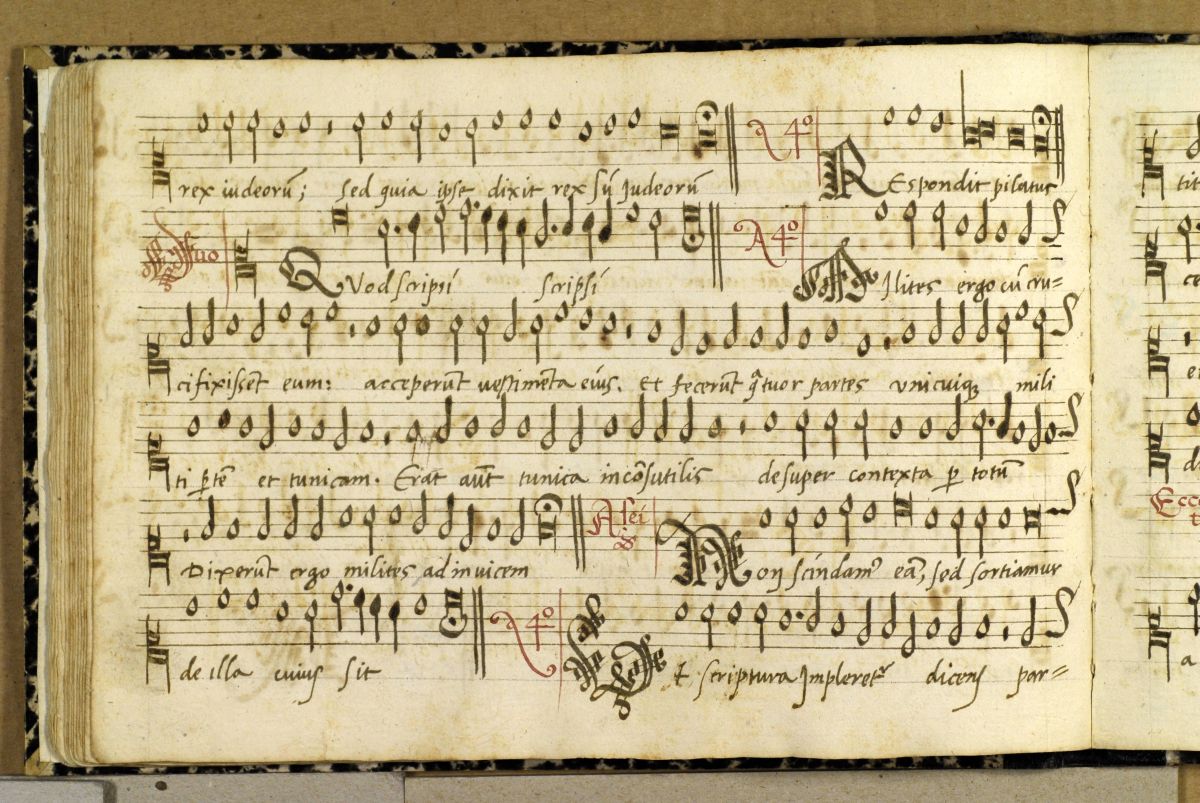 rex iudeorū; sed quia ipse dixit rex sū Iudeorū A 4º REspondit pilatus
Duo QVod scripsi scripsi A 4º Milites ergo cū cru=
cifixissēt eum: acceperūt vestimēta eiꝰ. Et fecerūt q̄tuor partes unicuiqꝫ mili
ti ꝑtē et tunicam. Erāt aūt tunica incōsutilis desuper contexta ꝑ totū
Dixerūt ergo milites ad invicem A sei NOn scindamꝰ eā, sed sortiamur
de illa cuius sit A 4º Et scriptura Impleretr dicens par=